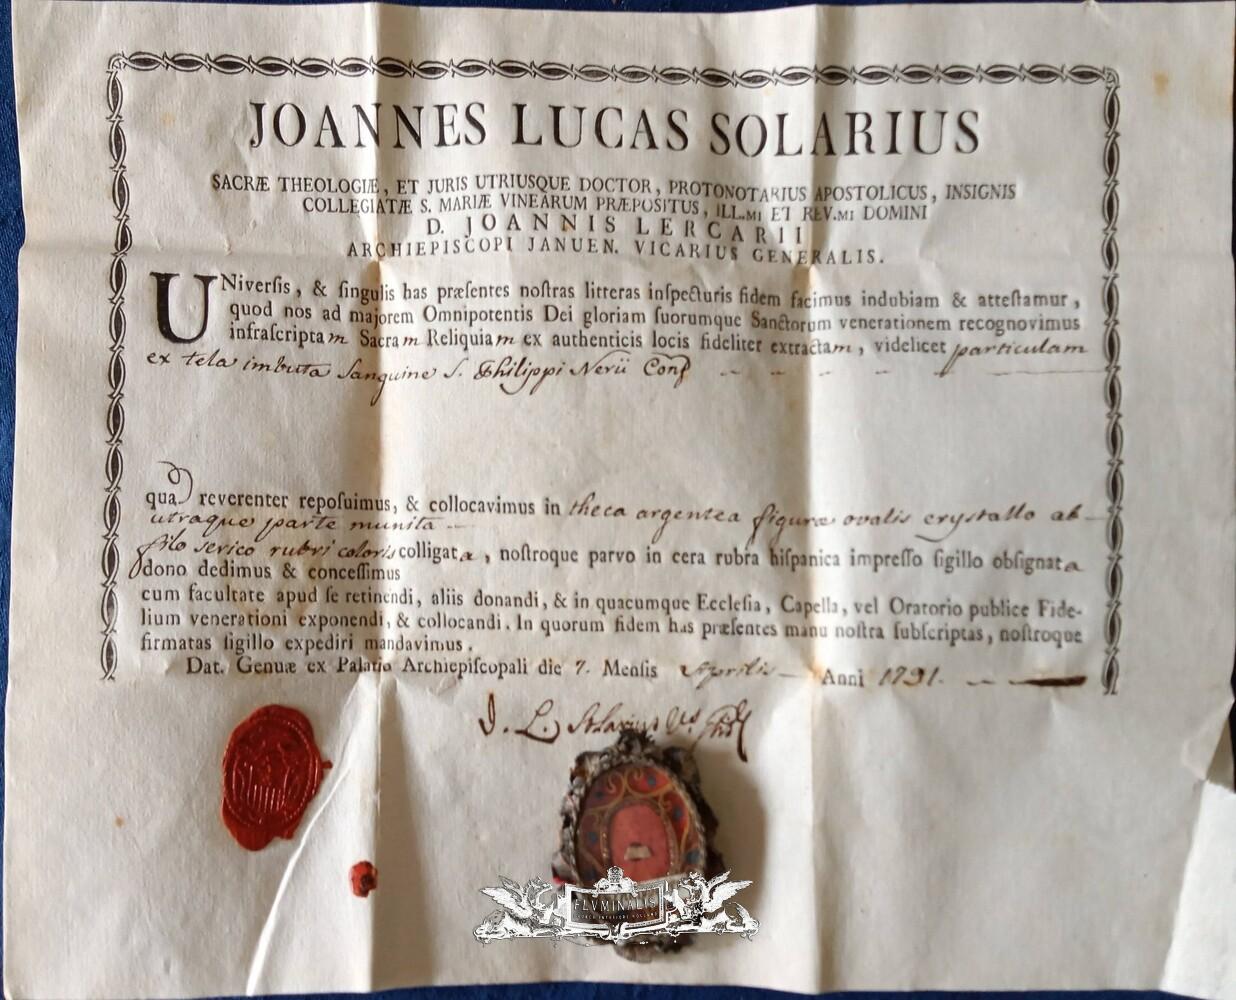 JOANNES LUCAS SOLARIUS
SACRÆ THEOLOGIÆ, ET JURIS UTRIUSQUE DOCTOR, PROTONOTARIUS APOSTOLICUS, INSIGNIS
COLLEGIATÆ S. MARIÆ VINEARUM PRÆPOSITUS, ILL.MI ET REV.MI DOMINI
D. JOANNIS LERCARII
ARCHIEPISCOPI JANUEN. VICARIUS GENERALIS.
UNiverſis, & ſingulis has præſentes noſtras litteras inſpecturis fidem facimus indubiam & atteſtamur,
quod nos ad majorem Omnipotentis Dei gloriam ſuorumque Sanctorum venerationem recognovimus
infraſcriptam Sacram Reliquiam ex authenticis locis fideliter extractam, videlicet particulam
ex tela imbuta Sanguine S. Philippi Nerii Conf
qua reverenter repoſuimus, & collocavimus in theca argentea figuræ ovalis crystallo ab
utraque parte munita
filo serico rubri coloris colligatæ, noſtroque parvo in cera rubra hiſpanica impreſſo ſigillo obſignata
dono dedimus & conceſſimus
cum facultate apud ſe retinendi, aliis donandi, & in quacumque Eccleſia, Capella, vel Oratorio publice Fide-
lium venerationi exponendi, & collocandi. In quorum fidem has præſentes manu noſtra ſubſcriptas, noſtroque
firmatas ſigillo expediri mandavimus.
Dat. Genuæ ex Palatio Archiepiſcopali die 7. Menſis Aprilis Anni 1791.
J. L. Solarius
FLVMINALIS